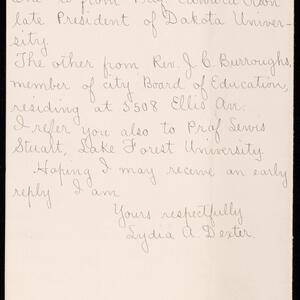 from Prof.
late President of Dakota Univer-
sity.
The other from Rev. J. C. Burroughs,
member of city Board of Education,
residing at 5508 Ellis Av.
I refer you also to Prof Lewis
Stuart, Lake Forest University.
Hoping I may receive an early
reply I am
Yours respectfully
Lydia A. Dexter.